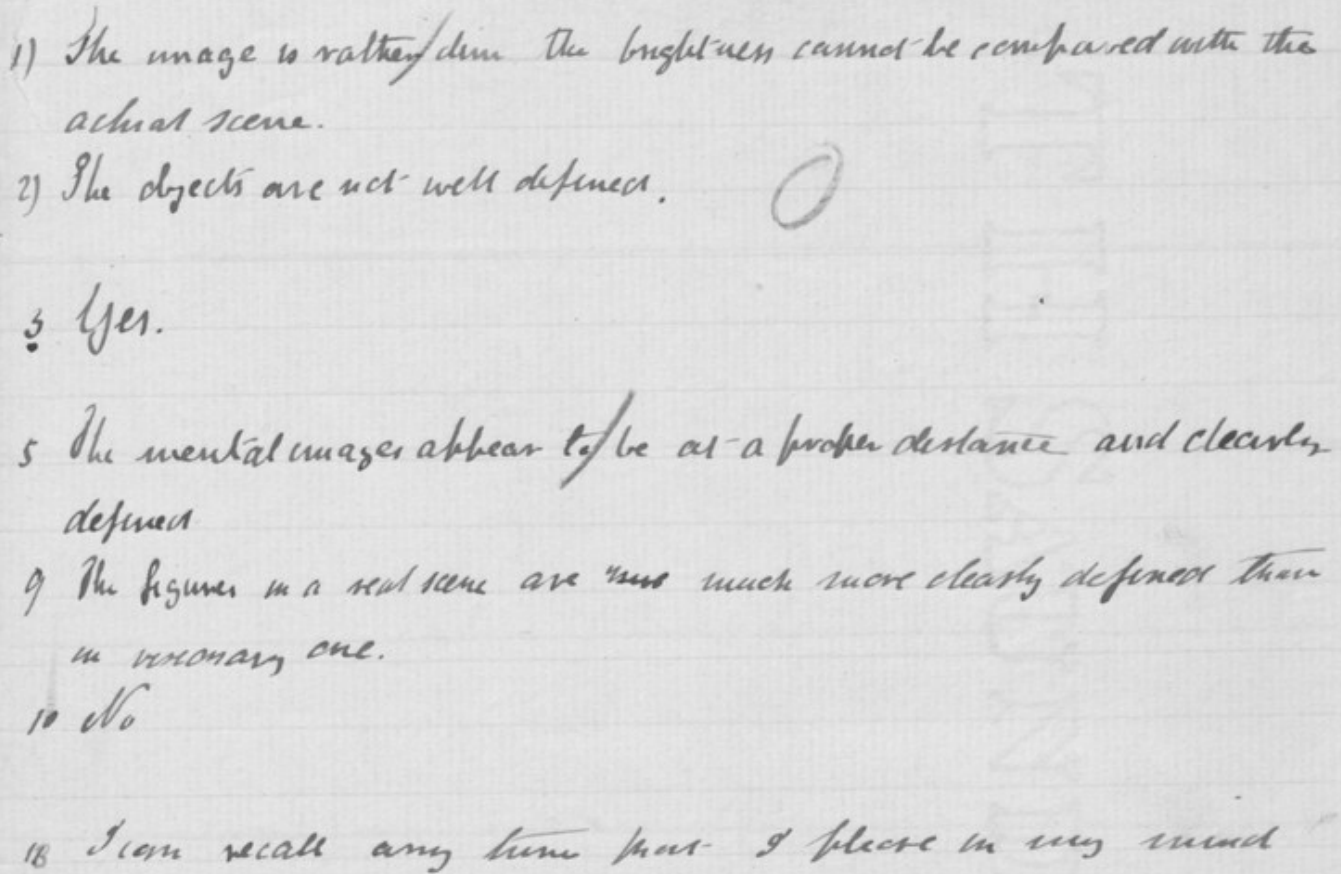 1) The image is rather dim the brightness cannot be compared with the
actual scene.
2) The objects are not well defined.
3 Yes.
5 The mental images appear to be at a proper distance and clearly
defined
9 The figures in a real scene are much more clearly defined than
in visionary one.
10 No
18 I can recall any tune that I please in my mind